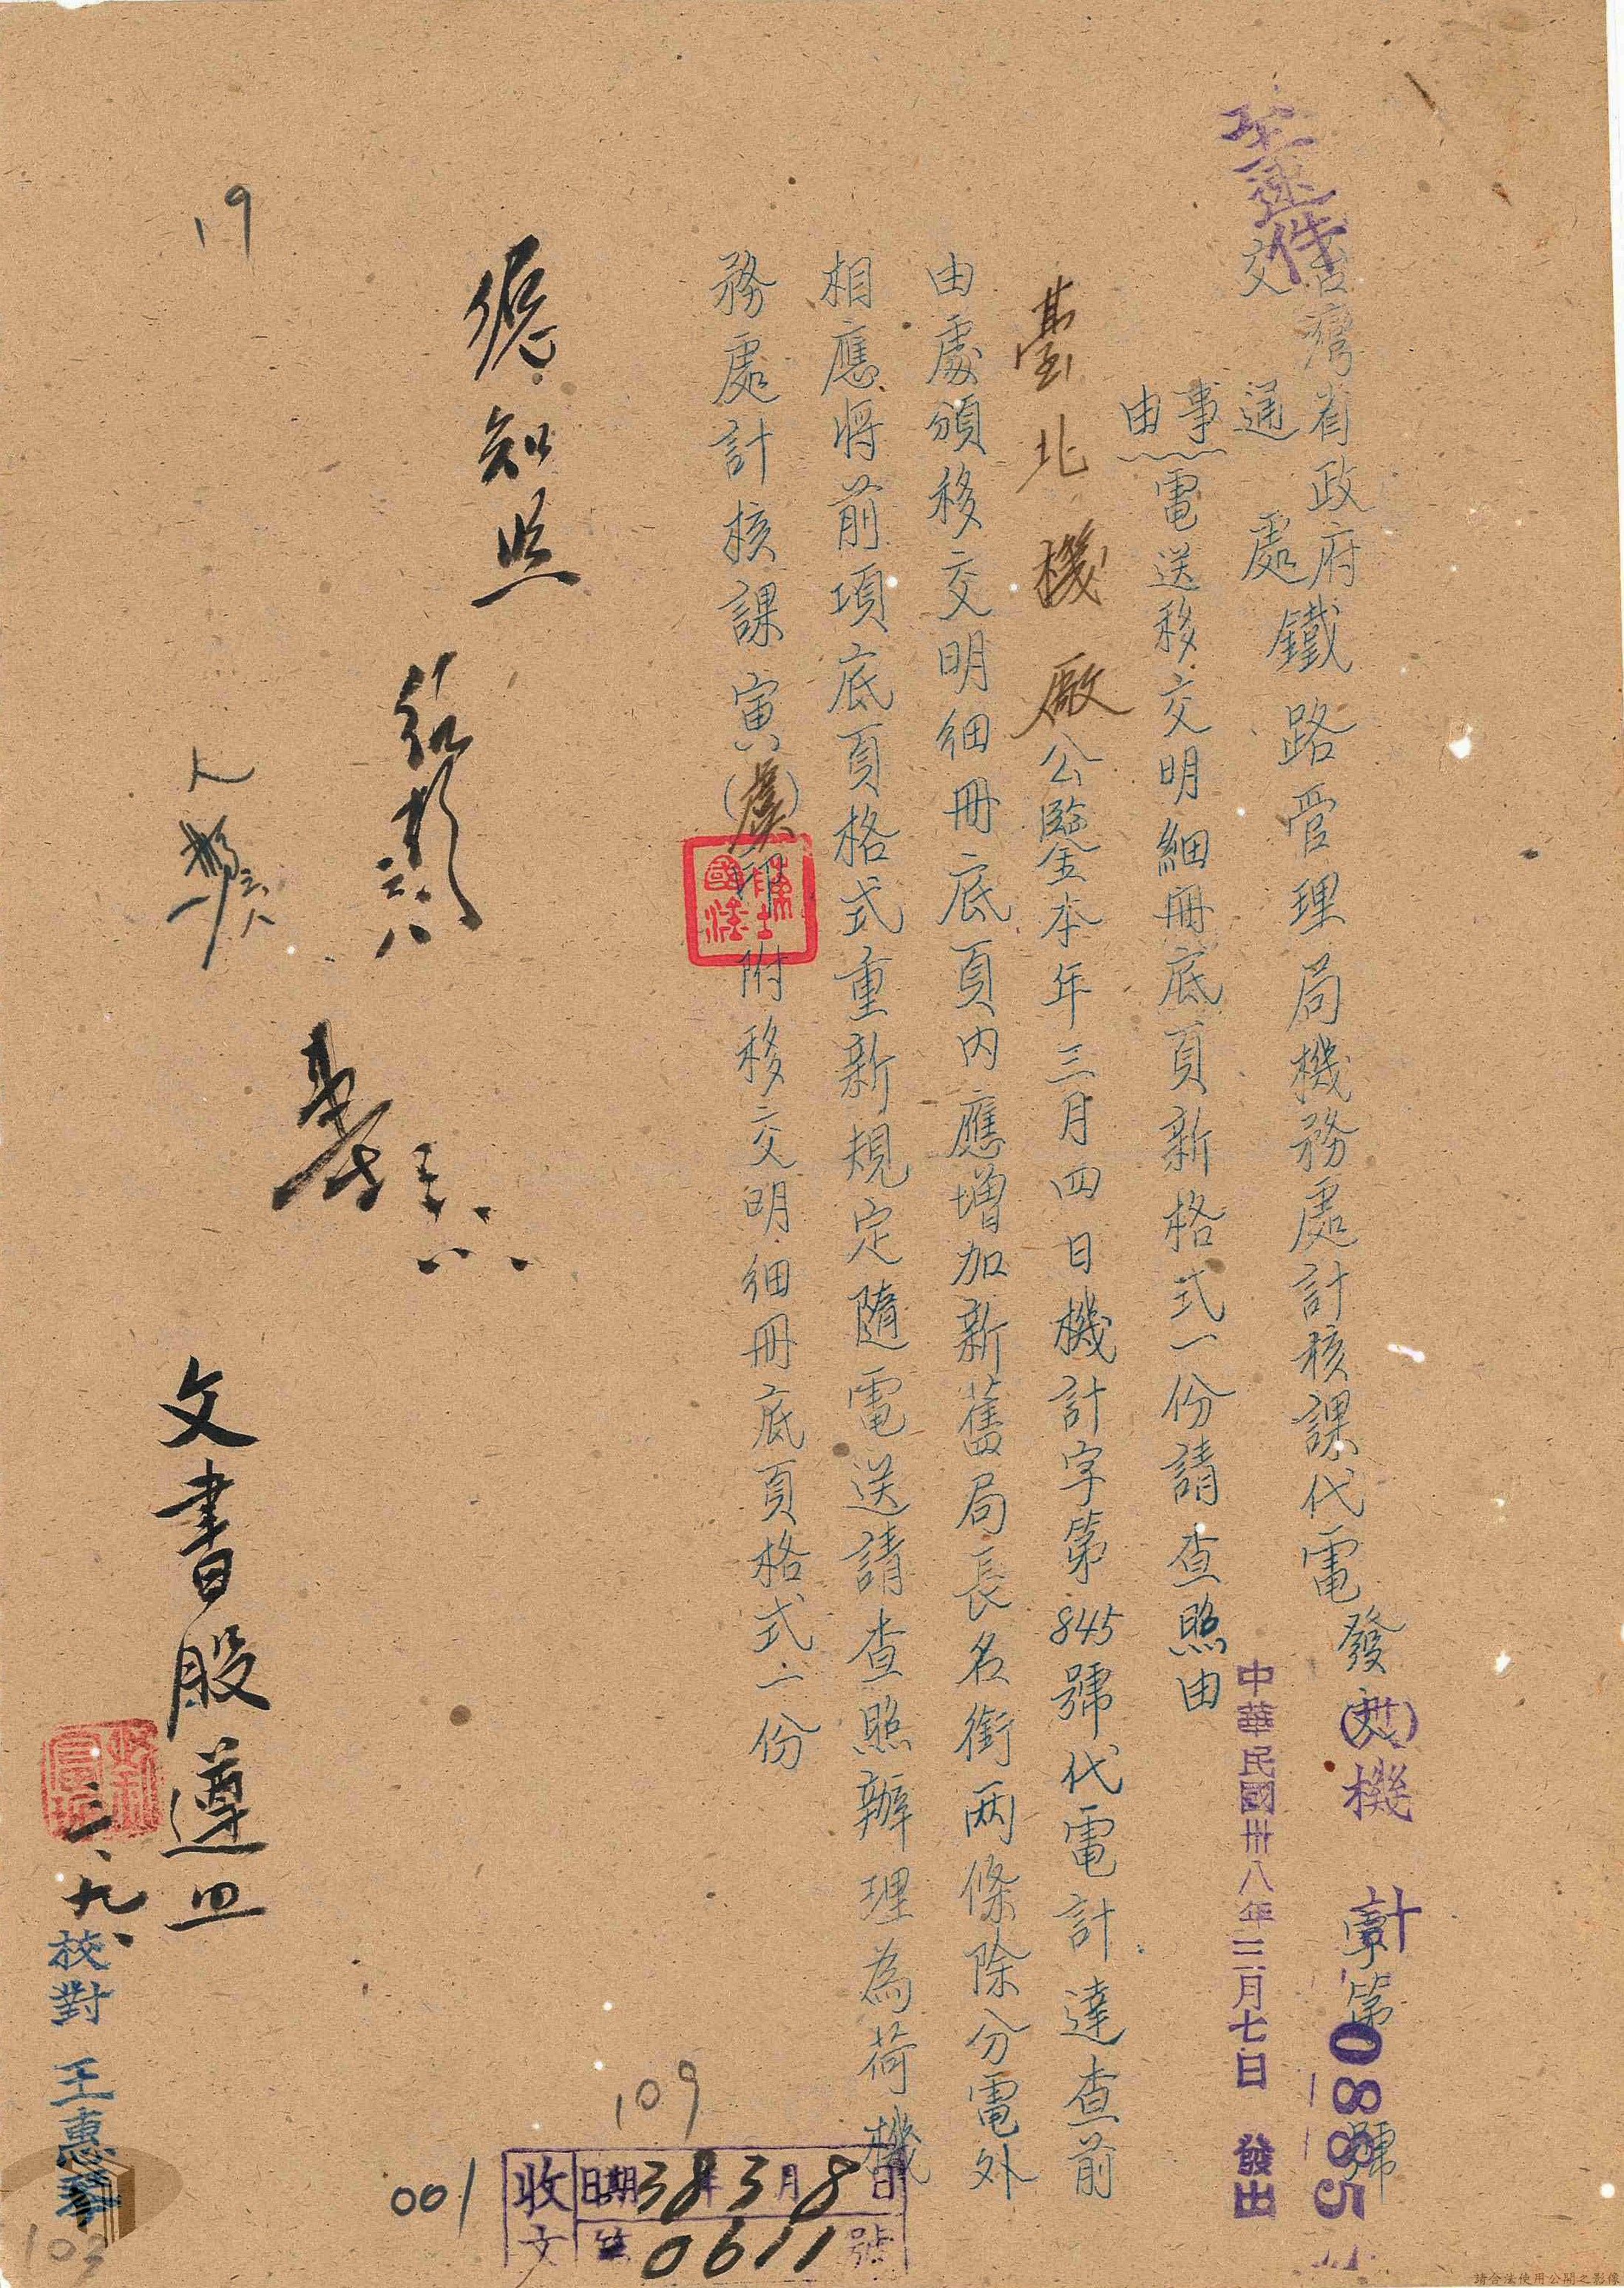 速件
台灣省政府
交通處
鐵路管理局機務處計核課代電
發文(卅八)機計字第08885號
中華民國卅八年三月七日 發出
事由
電送移交明細冊底頁新格式一份請查照由
臺北機廠公鑒本年三月四日機計字第845號代電計達查前
由處頒移交明細冊底頁內應增加新舊局長名銜兩條除分電外
相應將前項底頁格式重新規定隨電送請查照辦理為荷機
務處計核課寅(虞)印附移交明細冊底頁格式一份
知照
文書股遵照
三、九、
校對 王惠
收文
日期38年3月8日
第0611號
109
001
103
19
請合法使用公開之影像